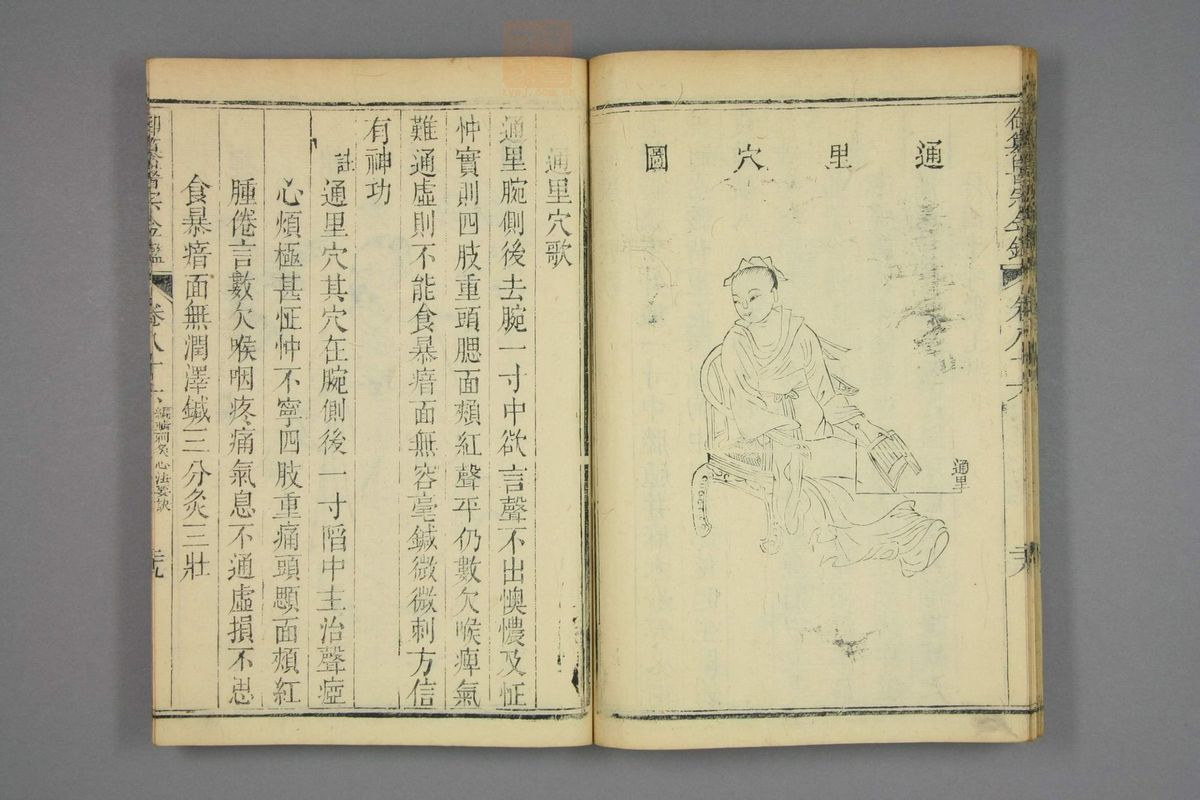 御纂醫宗金鑑 卷八十六
通里穴圖
通里
通里穴歌
通里腕側後去腕一寸中欲言聲不出懊憹及怔
忡實則四肢重頭腮面頰紅聲平仍數欠喉痺氣
難通虛則不能食暴瘖面無容毫鍼微微刺方信
有神功
註 通里穴其穴在腕側後一寸陷中主治聲瘂
心煩極甚怔忡不寧四肢重痛頭顋面頰紅
腫倦言數欠喉咽疼痛氣息不通虛損不思
食暴瘖面無潤澤鍼三分灸三壯
御纂醫宗金鑑 卷八十六 編輯刺灸心法要訣